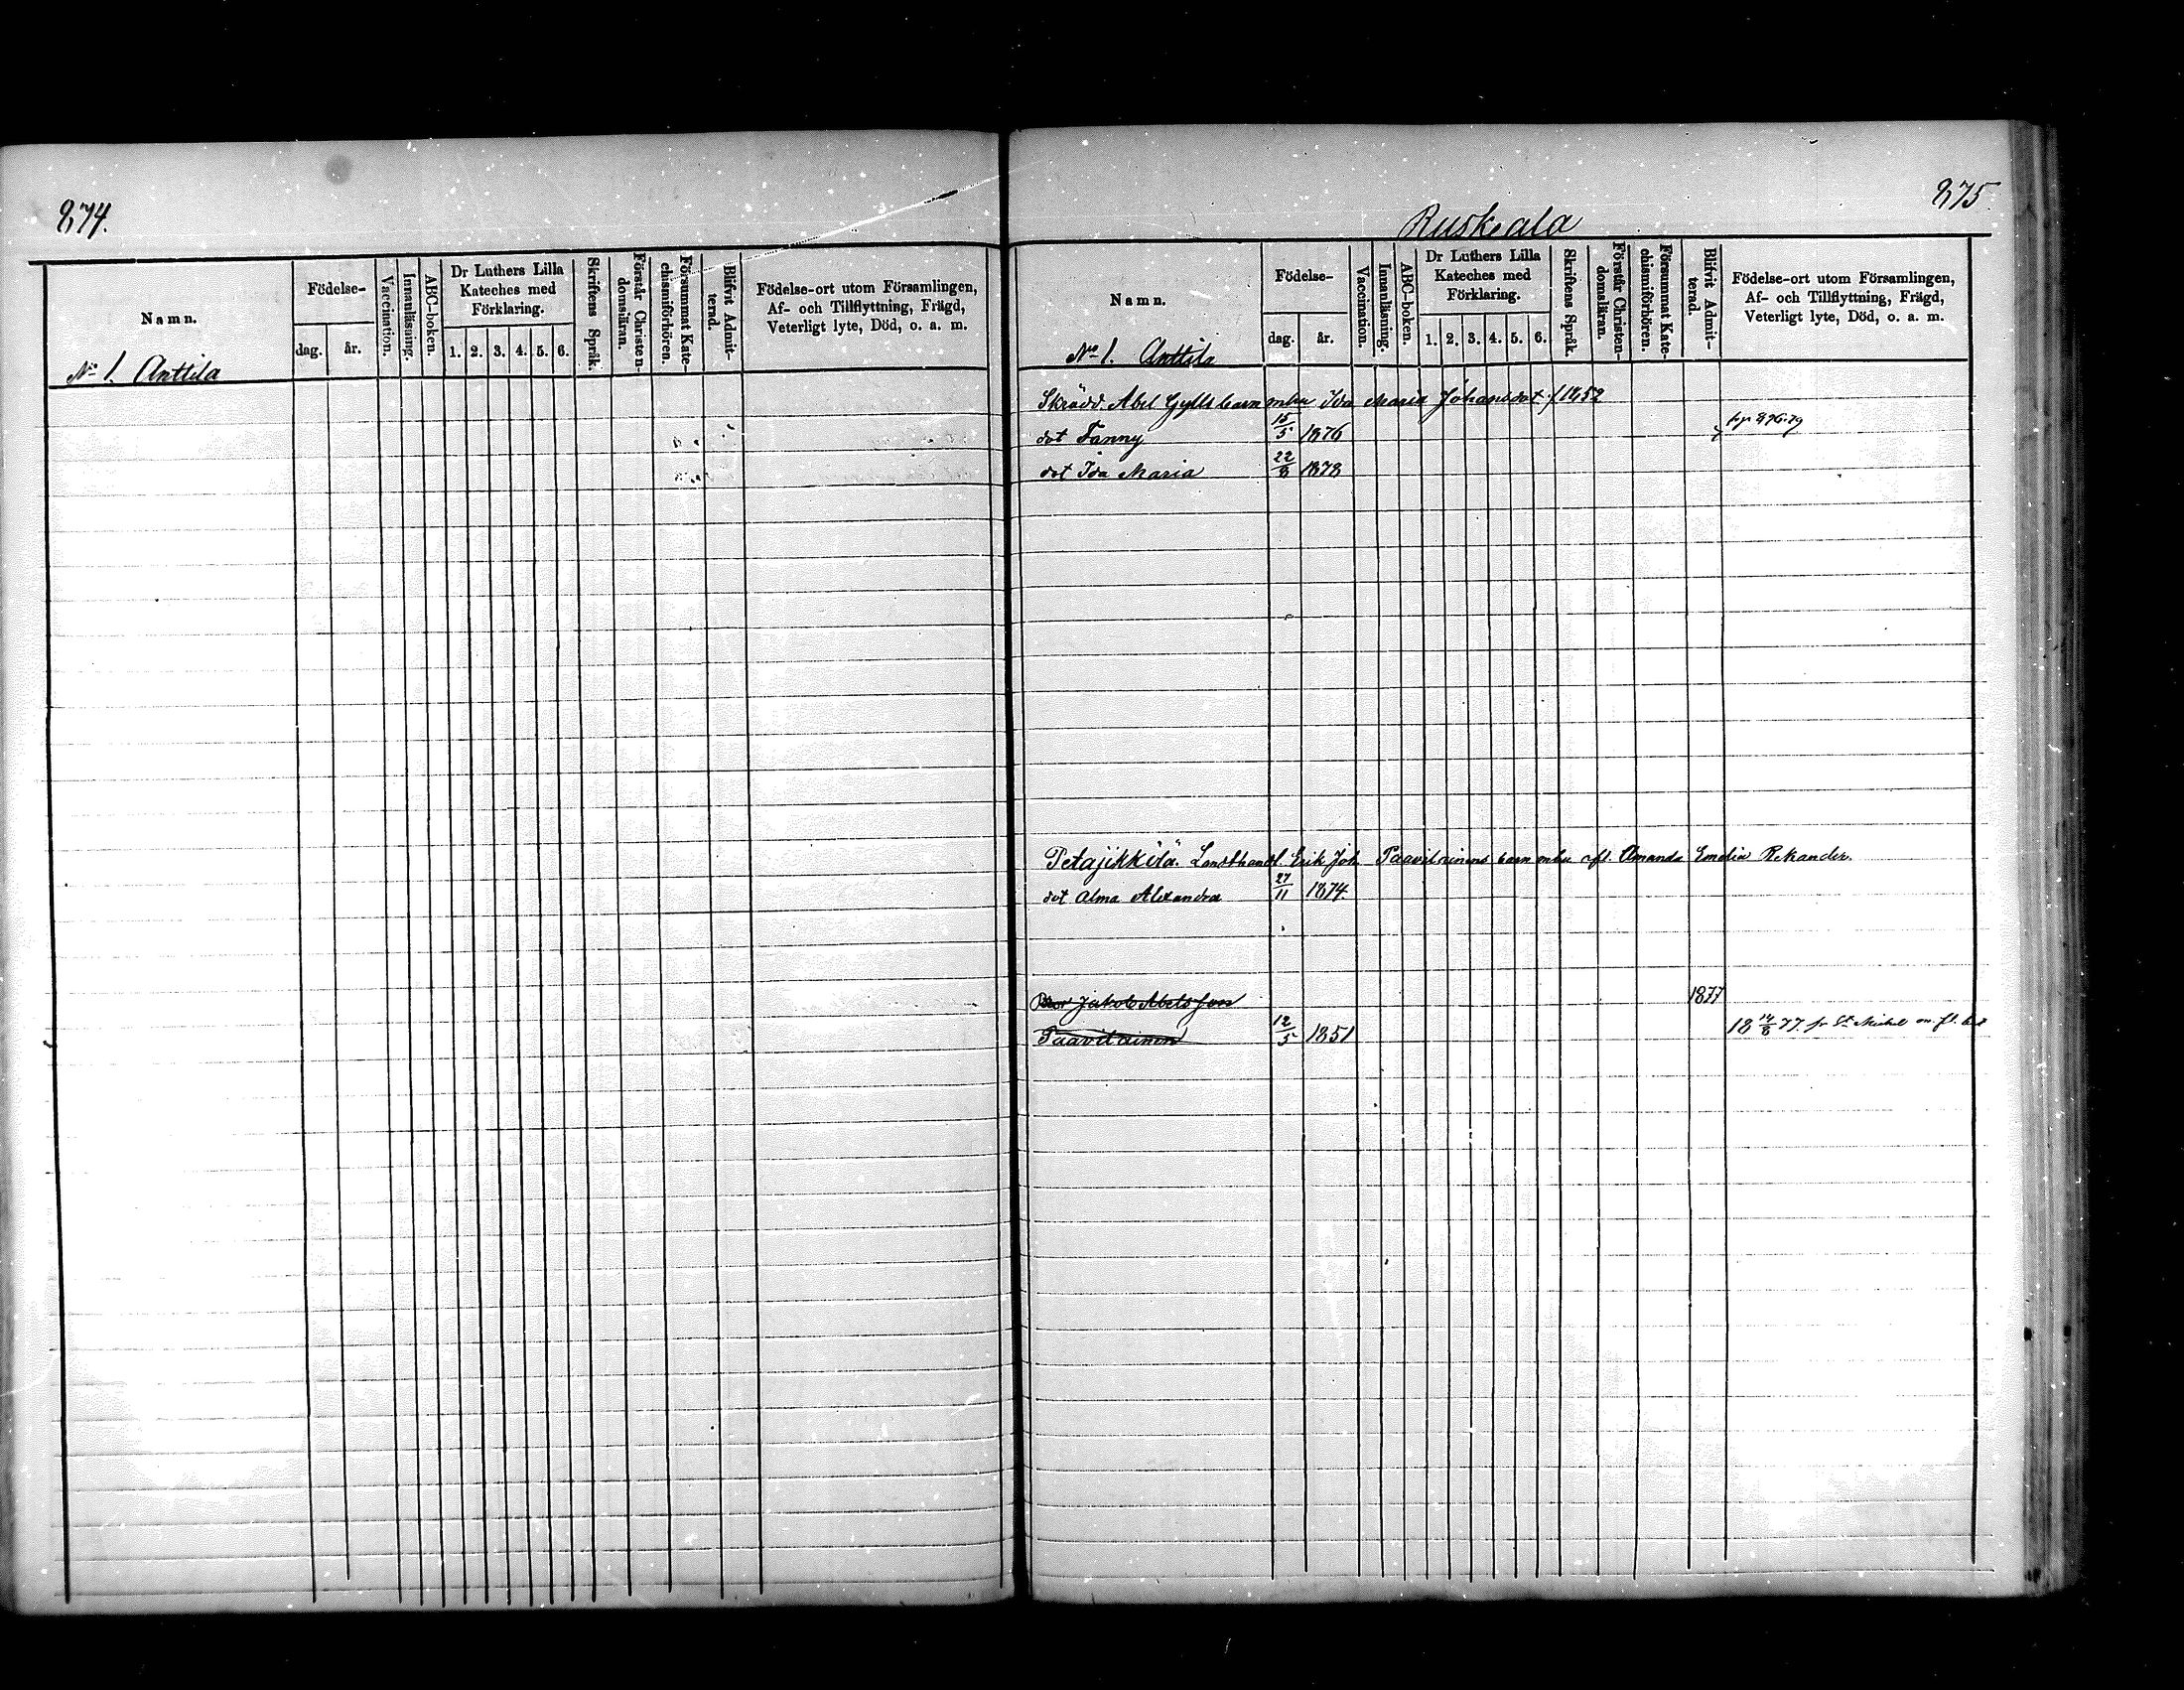 874.
Namn.
Födelse-
dag. år.
Vaccination.
Innanläsning.
ABC-boken.
Dr Luthers Lilla
Kateches med
Förklaring.
1. 2. 3. 4. 5. 6.
Skriftens Språk.
Förstår Christen-
domsläran.
Försummat Kate-
chismiförhören.
Blifvit Admit-
terad.
Födelse-ort utom Församlingen,
Af- och Tillflyttning, Frägd,
Veterligt lyte, Död, o. a. m.
No 1. Anttila
875.
Ruskeala
Namn.
Födelse-
dag. år.
Vaccination.
Innanläsning.
ABC-boken.
Dr Luthers Lilla
Kateches med
Förklaring.
1. 2. 3. 4. 5. 6.
Skriftens Språk.
Förstår Christen-
domsläran.
Försummat Kate-
chismiförhören.
Blifvit Admit-
terad.
Födelse-ort utom Församlingen,
Af- och Tillflyttning, Frägd,
Veterligt lyte, Död, o. a. m.
No 1. Anttila
Skrädd. Abel Gylls barn Ida Maria Johansdot. / 1852
dot Fanny 15/5 1876
dot Ida Maria 22/8 1878
Petäjikkitä. Landthandl. Erik Joh. Paavilainens barn Amanda Emelia Rekander.
dot Alma Alexandra 27/11 1874.
Jakob Abelsson 1877
Paavilainen 12/5 1851 18 14/8 77. fr St Michel